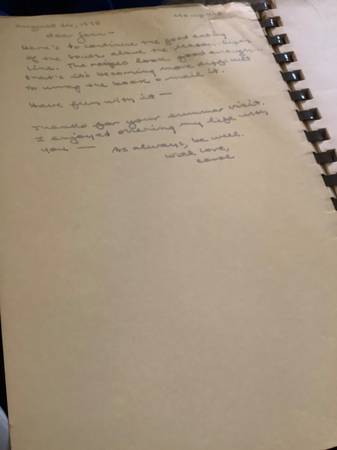 August 20, 1998 Memphis
dear Jean —
Here's to continue the good eating
of the South above the Mason-Dixon
Line. The recipes look good enough
that it's becoming more difficult
to wrap the book & mail it.
Have fun with it —
Thanks for your summer visit.
I enjoyed sharing my life with
you — As always, be well.
With love,
Carol